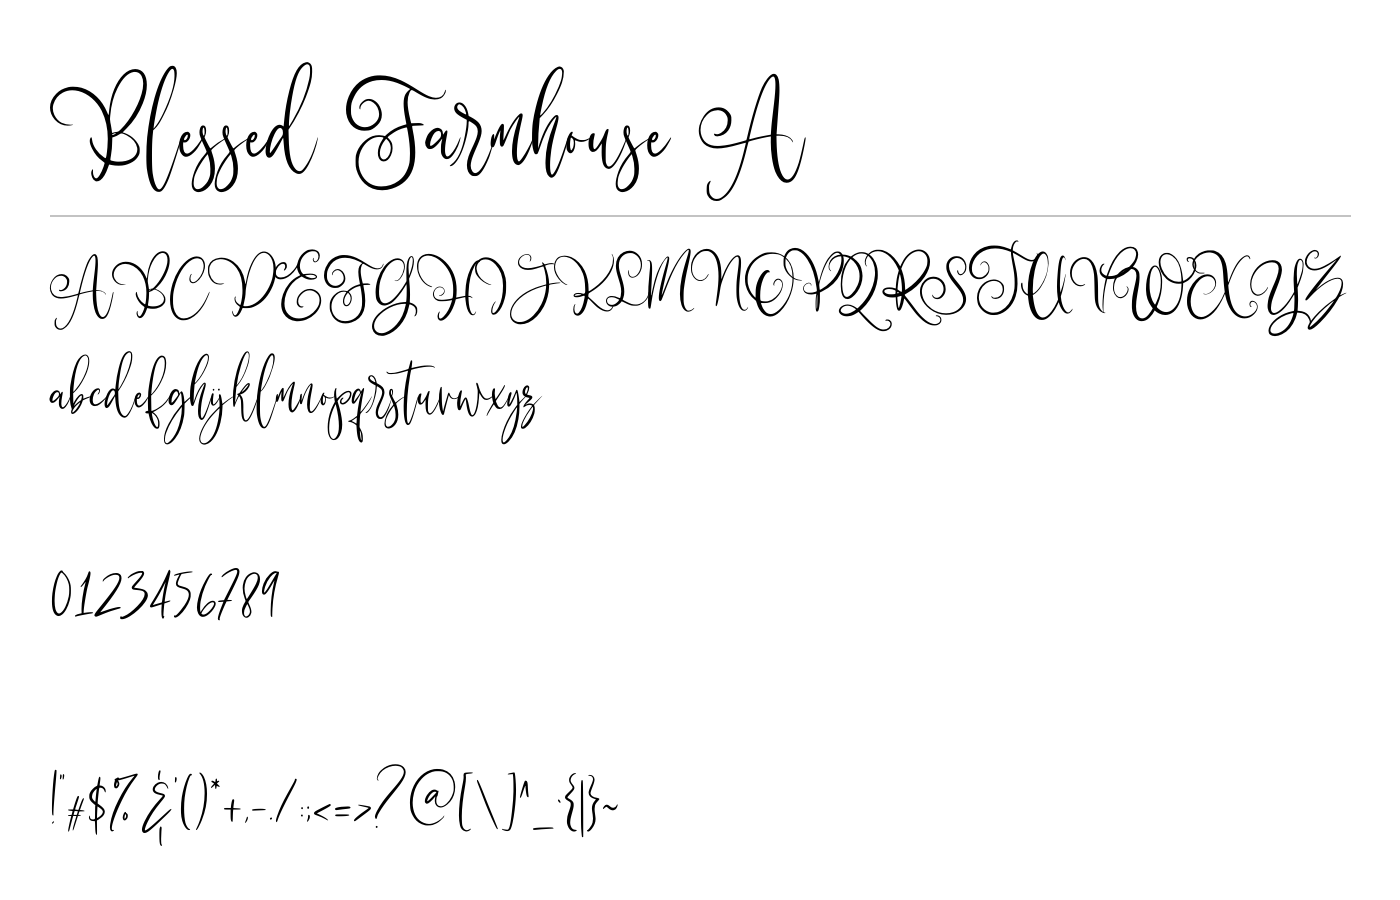 Blessed Farmhouse A
ABCDEFGHIJKLMNOPQRSTUVWXYZ
abcdefghijklmnopqrstuvwxyz
0123456789
!"#$%&'()*+,-./:;<=>?@[\]^_`{|}~